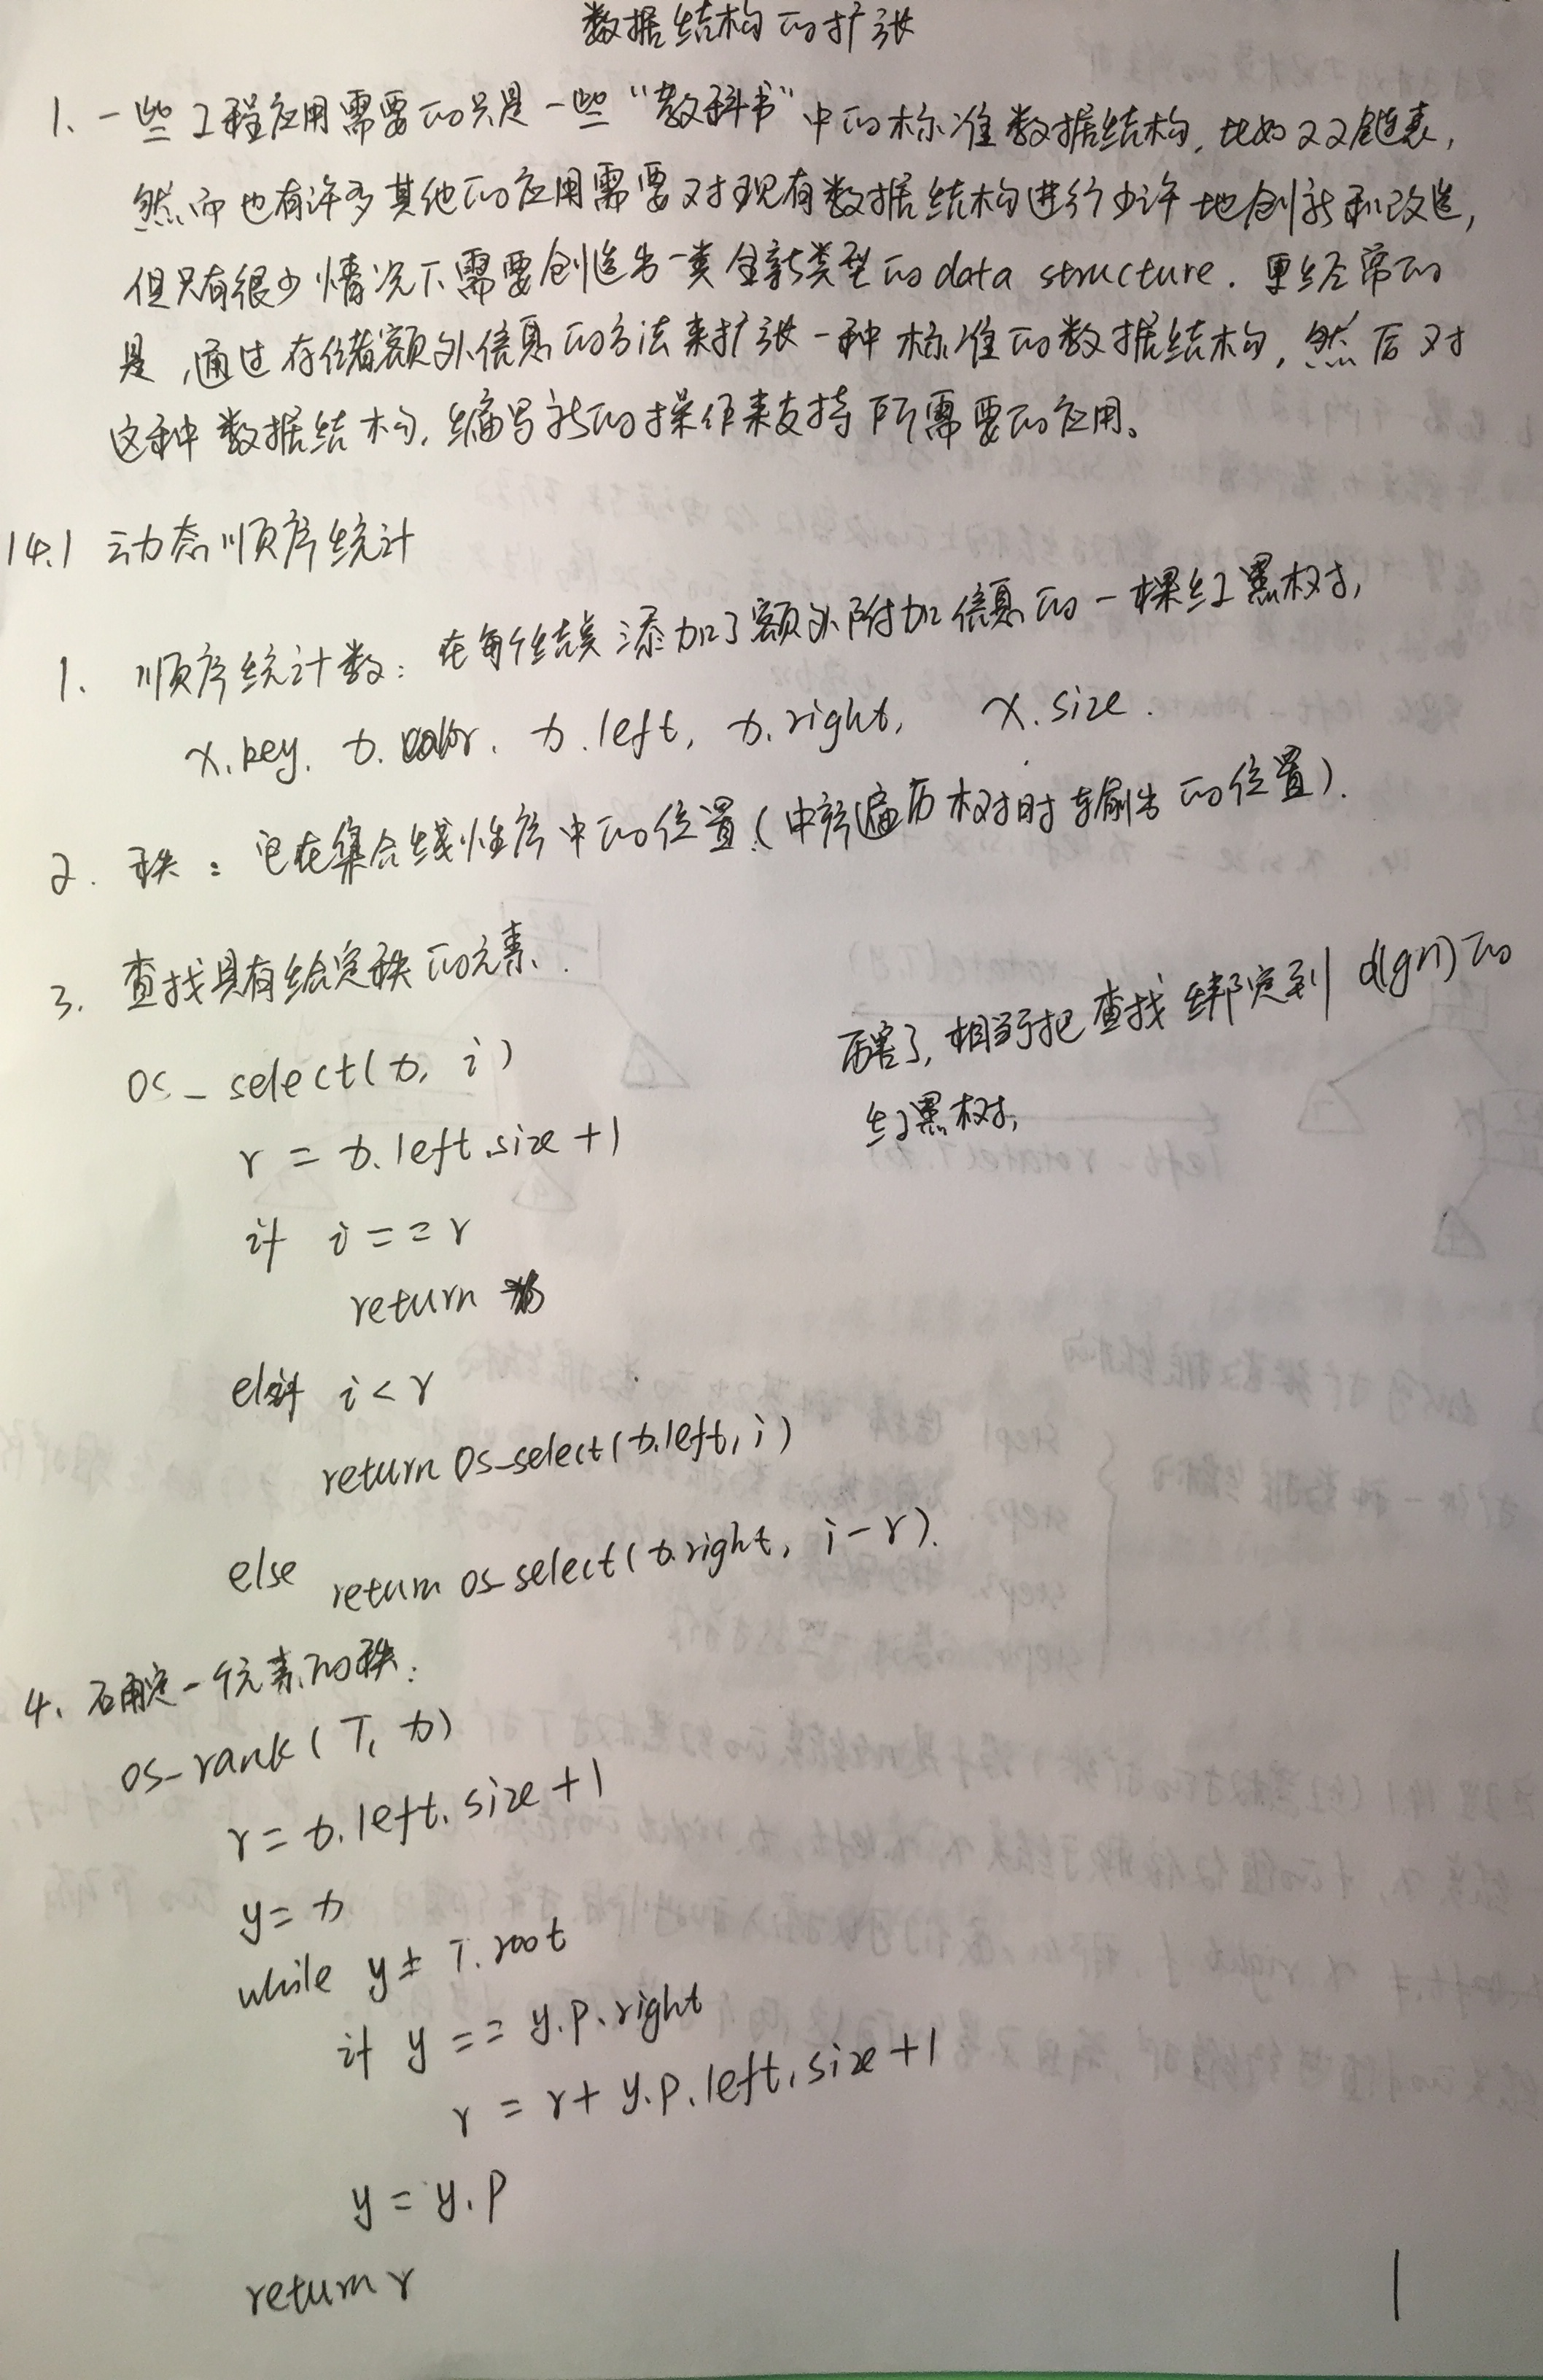 数据结构的扩张
1、一些工程应用需要的只是一些“教科书”中的标准数据结构,比如双链表,
然而也有许多其他的应用需要对现有数据结构进行少许地创新和改造,
但只有很少情况下需要创造出一类全新类型的data structure. 更经常的
是,通过存储额外信息的方法来扩张一种标准的数据结构,然后对
这种数据结构,编写新的操作来支持所需要的应用。
14.1 动态顺序统计
1. 顺序统计数:在每个结点添加了额外附加信息的一棵红黑树,
x.key. x.color. x.left, x.right, x.size.
2. 秩:它在集合线性序中的位置(中序遍历树时输出的位置).
3. 查找具有给定秩的元素.
厉害了,相当于把查找绑定到 o(lgn)的
红黑树,
os_select(x, i)
r = x.left.size+1
if i==r
return x
elseif i<r
return os_select(x.left,i)
else return os_select(x.right, i-r).
4、确定一个元素的秩:
os_rank(T, x)
r=x.left.size+1
y=x
while y≠T.root
if y==y.p.right
r=r+y.p.left.size+1
y=y.p
return r
1